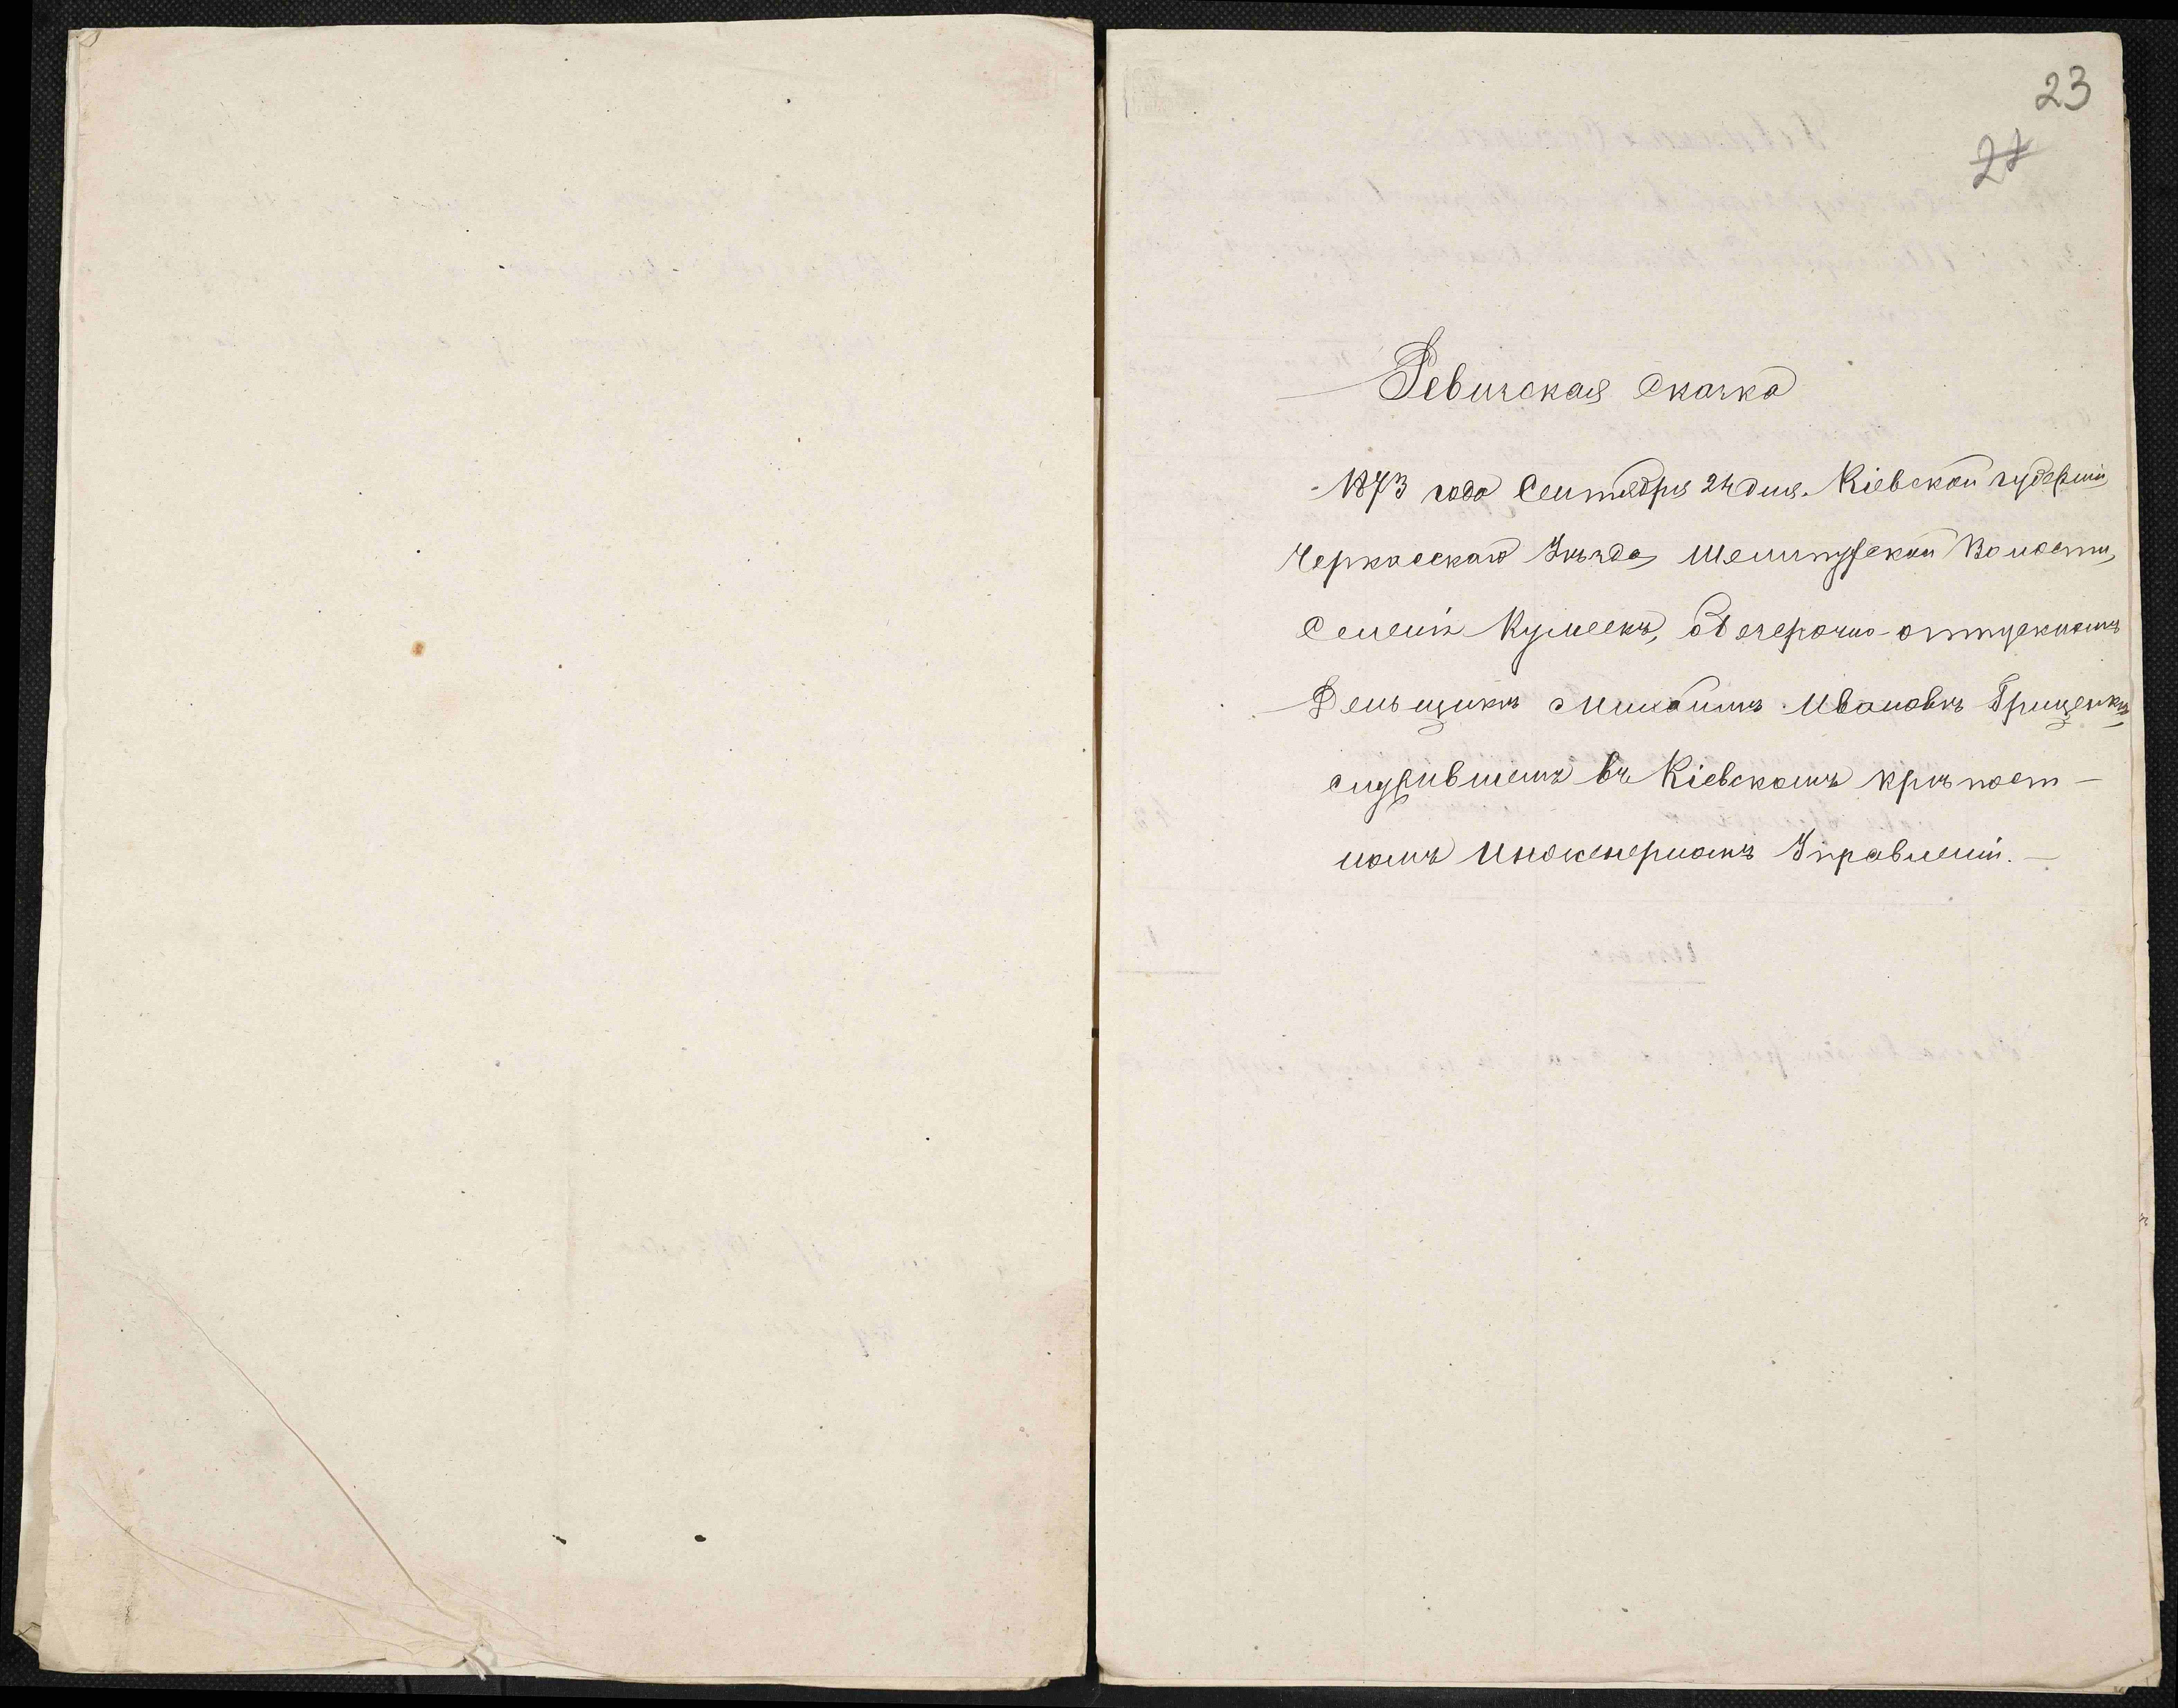 23
27
Ревизская Сказка
1873 года Сентября 24 дня. Кіевской губерніи
Черкасскаго Уѣзда, Шелипуской Волости,
Селенія Кумеекъ, о безсрочно-отпускномъ
Деньщикѣ Михаилѣ Ивановѣ Гриценкѣ,
служившемъ въ Кіевскомъ крѣпост-
номъ Инженерномъ Управленіи.